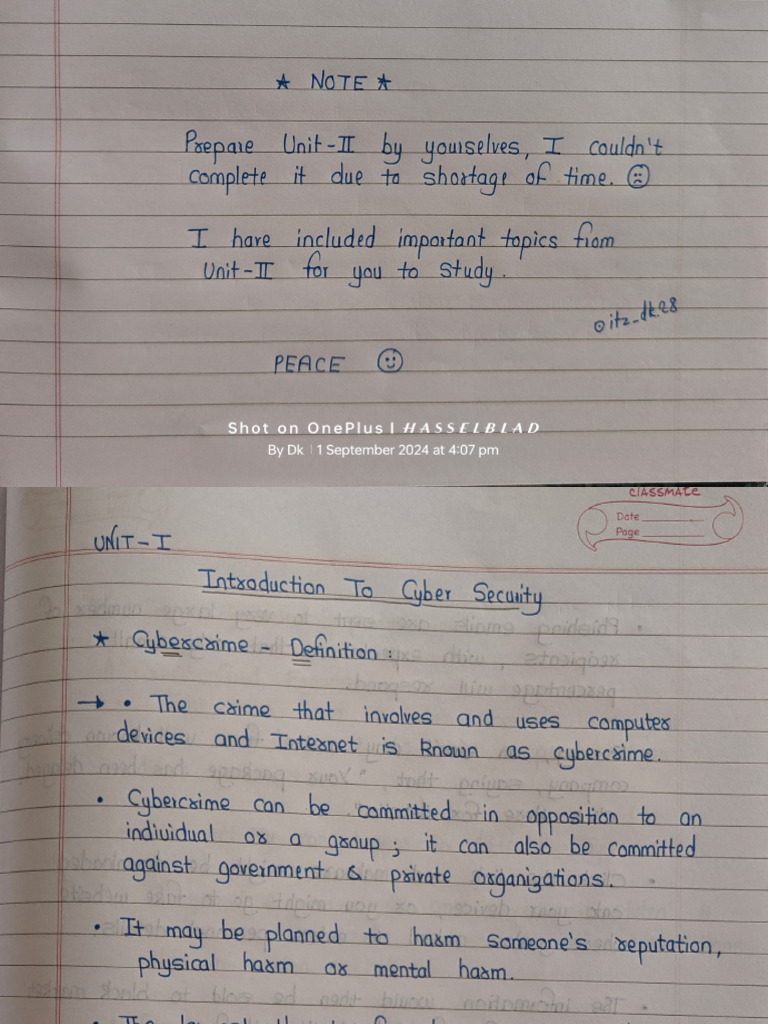 ★ NOTE ★
Prepare Unit-II by yourselves, I couldn't
complete it due to shortage of time. ☹
I have included important topics from
Unit-II for you to study.
itz_dk28
PEACE ☺
Shot on OnePlus | HASSELBLAD
By Dk | 1 September 2024 at 4:07 pm
CLASSMATE
Date
Page
UNIT-I
Introduction To Cyber Security
★ Cybercrime - Definition :
→ • The crime that involves and uses computer
devices and Internet is known as cybercrime.
• Cybercrime can be committed in opposition to an
individual or a group ; it can also be committed
against government & private organizations.
• It may be planned to harm someone's reputation,
physical harm or mental harm.